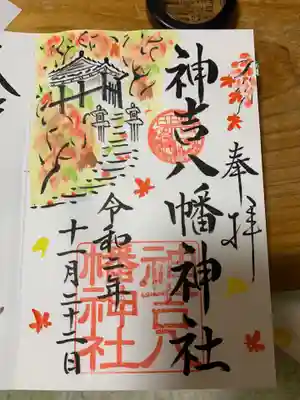 奉拝
神吉八幡神社
令和二年
十一月二十二日
神吉八
幡神社